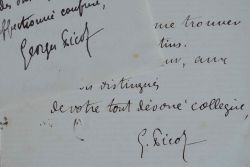 affectionné confrère,
Georges Picot
me trouver
distingués
de votre tout dévoué collègue,
G. Picot